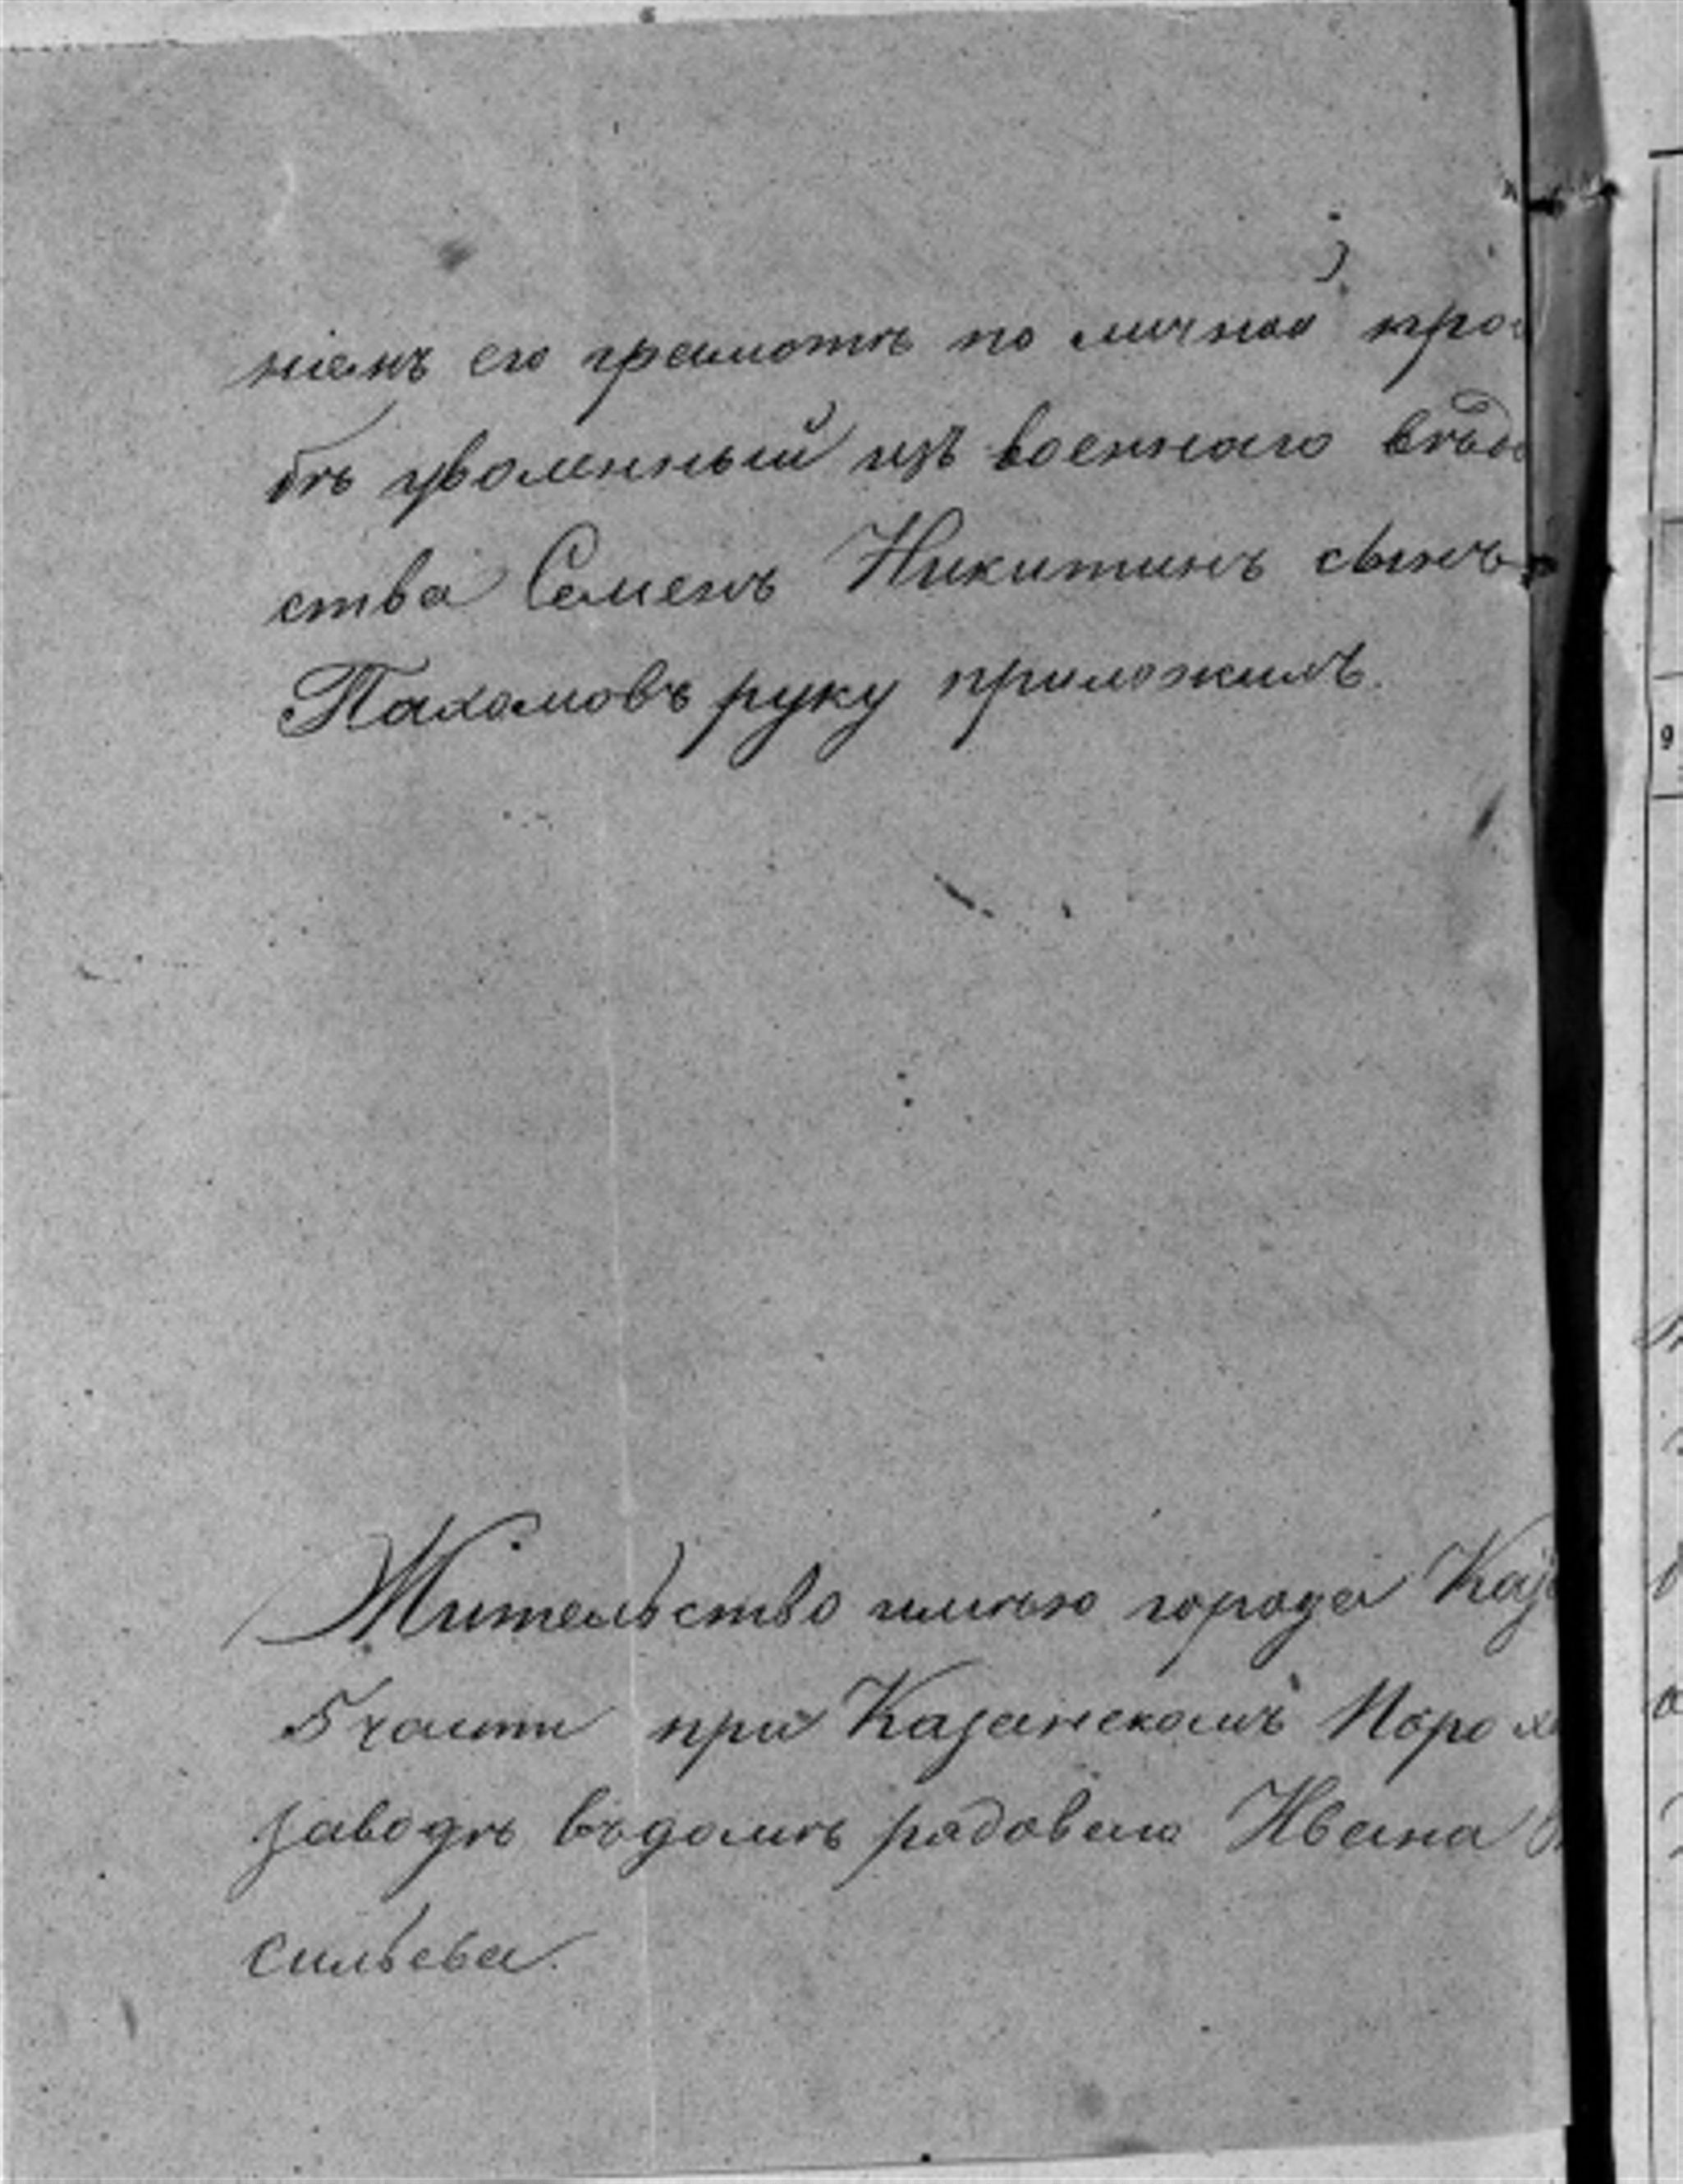 ніемъ его грамотѣ по личной прось
бѣ уволенный изъ военнаго вѣдом
ства Семенъ Никитинъ сынъ
Пахомовъ руку приложилъ.
Жительство имѣю города Каз
5 части при Казанскомъ Порох
заводѣ въ домѣ рядоваго Ивана Ва
сильева.
9